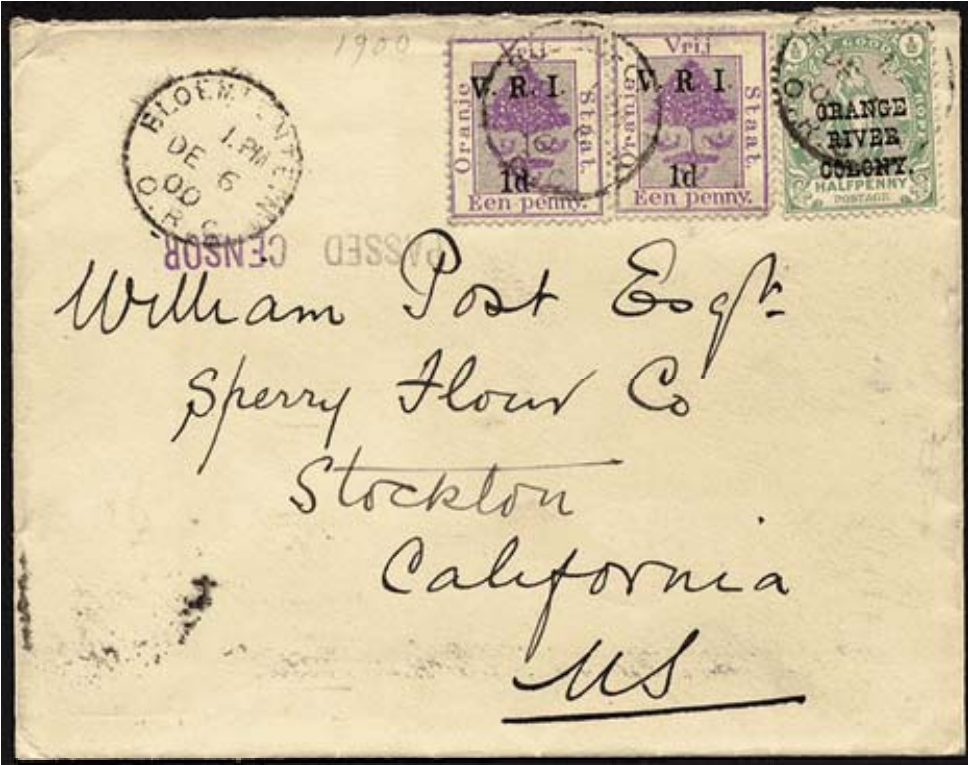 1900
BLOEMFONTEIN
1. PM
DE 6
00
O.R.C.
Vrij
Oranje
Staat.
V. R. I.
1d
Een penny.
Vrij
Oranje
Staat.
V. R. I.
1d
Een penny.
OF GOOD HOPE
1/2
1/2
ORANGE
RIVER
COLONY.
HALFPENNY
POSTAGE
PASSED CENSOR
William Post Esqr.
Sperry Flour Co
Stockton
California
US